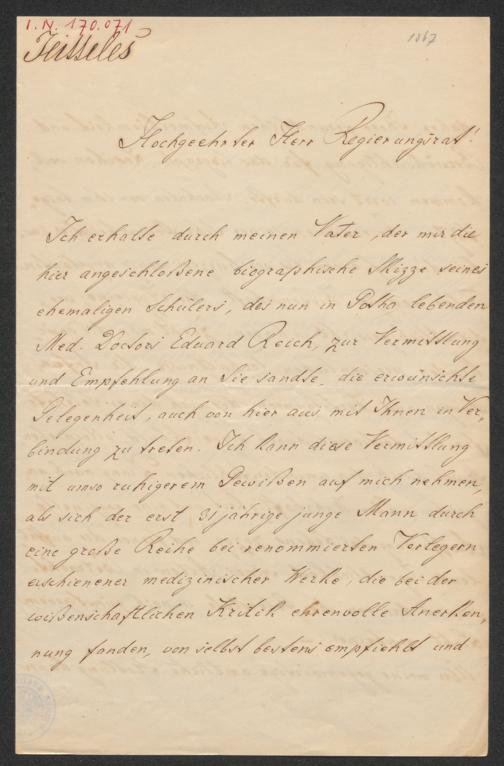 I.N. 170.071
Jeitteles
1867
Hochgeehrter Herr Regierungsrat!
Ich erhalte durch meinen Vater, der mir die
hier angeschloßene biographische Skizze seines
ehemaligen Schülers, des nun in Gotha lebenden
Med. Doctors Eduard Reich, zur Vermittlung
und Empfehlung an Sie sandte, die erwünschte
Gelegenheit, auch von hier aus mit Ihnen in Ver-
bindung zu treten. Ich kann diese Vermittlung
mit umso ruhigerem Gewißen auf mich nehmen,
als sich der erst 31jährige junge Mann durch
eine große Reihe bei renommierten Verlegern
erschienener medizinischer Werke, die bei der
wißenschaftlichen Kritik ehrenvolle Anerken-
nung fanden, von selbst bestens empfiehlt und